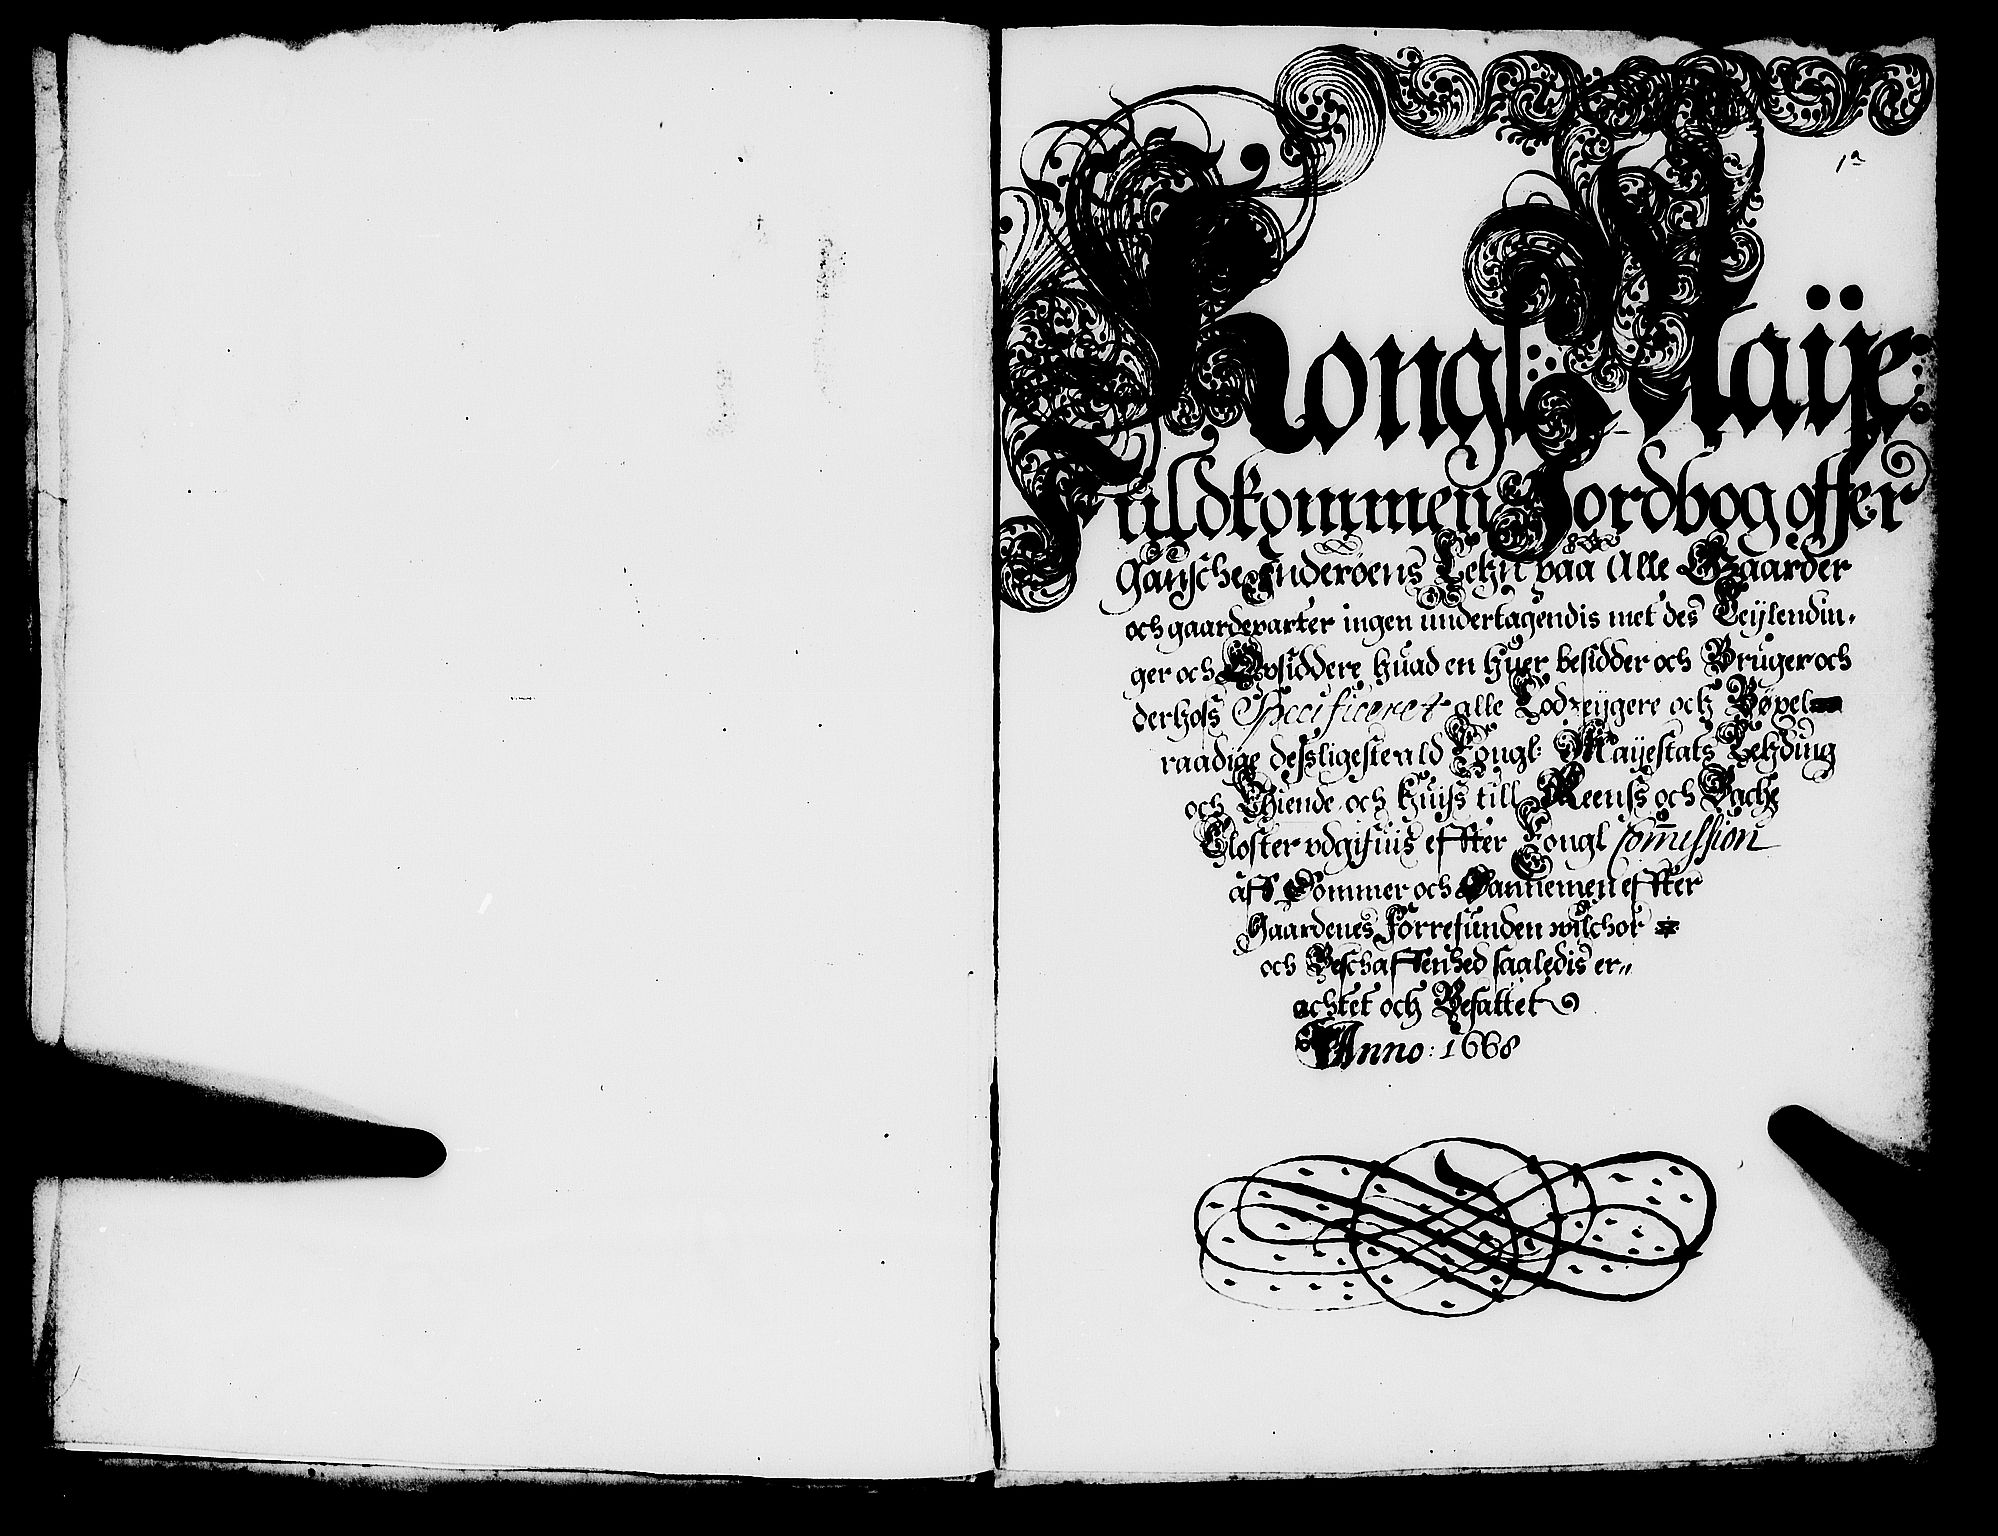 1a
Kongl: Maÿe:
Fuldkommen Jordbog offer
Gansche Inderøens Lehn paa Alle Gaarder
och gaardeparter ingen undertagendis met des Leÿlendin,
ger och Opsiddere huad en huer besidder och Bruger och
derhoss Specificeret alle Lodzeÿgere och Bøxel
raadige dessligeste ald Kongl: Maÿestats Lehding
och Thiende och huiss till Reenss och Bache
Closter udgifuis effter Kongl Commission
aff Dommer och Dannemen effter
Gaardenes Forrefunden wilchor
och Beschaffenhed saaledis er,,
achtet och Befattet
Anno: 1668